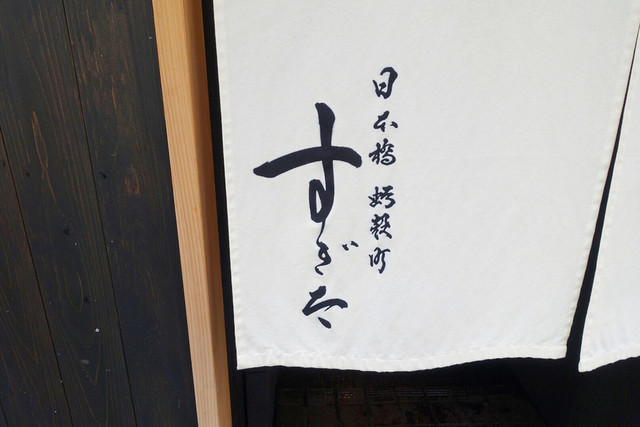 日本橋 蛎殻町
すぎ太